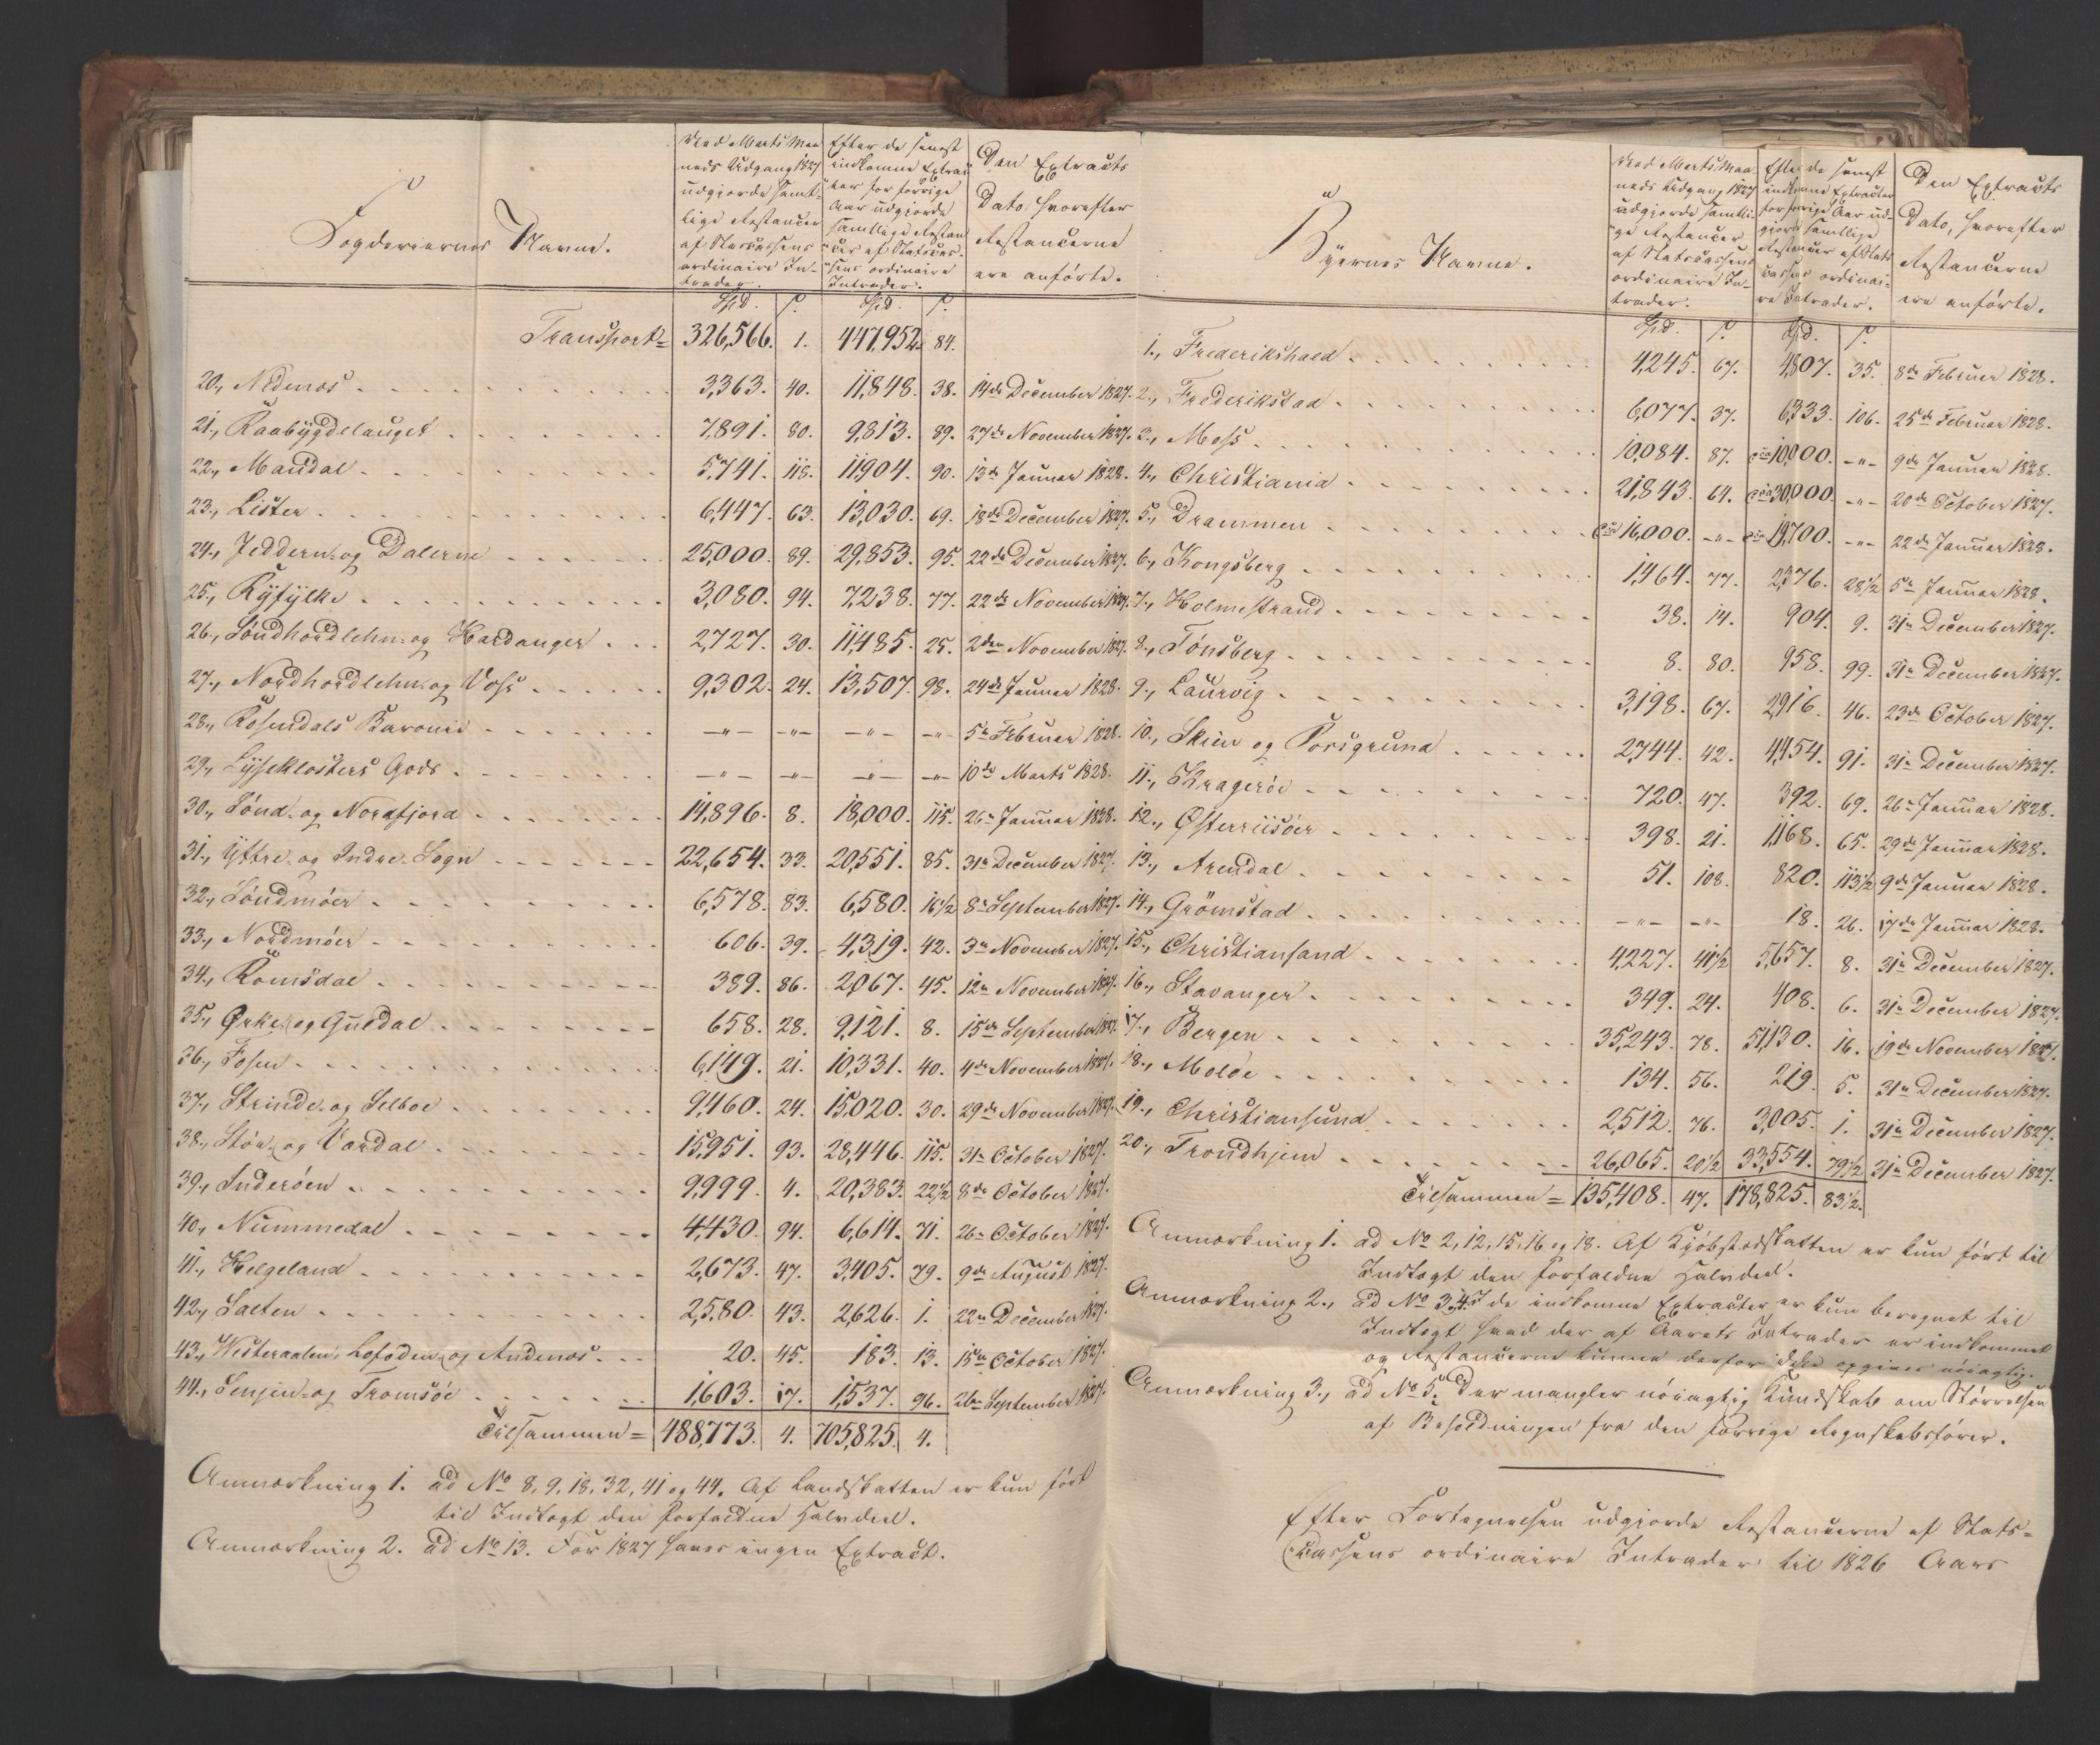 Fogderiernes Navne.
Ved Marts Maa-
neds Udgang 1827
udgjorde samt-
lige Restancer
af Statscassens
ordinaire In-
trader.
Efter de senest
indkomne Extrac-
ter for forrige
Aar udgjorde
samtlige Restan-
cer af Statscas-
sens ordinaire
Intrader.
Den Extracts
Dato, hvorefter
Restancerne
ere anførte.
Spd. ß. Spd. ß.
Transport = 326,566. 1. 447,952. 84.
20., Nedenæs 3,363. 40. 11,848. 38. 14de December 1827.
21., Raabygdelauget 7,891. 80. 9,813. 89. 27de November 1827.
22., Mandal 5,741. 118. 11,904. 90. 13de Januar 1828.
23., Lister 6,447. 63. 13,030. 69. 18de December 1827.
24., Jeddern og Dalerne 25,000. 89. 29,853. 95. 22de December 1827.
25., Ryfylke 3,080. 94. 7,238. 77. 22de November 1827.
26., Søndhordlehn og Hardanger 2,727. 30. 11,485. 25. 2den November 1827.
27., Nordhordlehn og Voss 9,302. 24. 13,507. 98. 24de Januar 1828.
28., Rosendals Baronie —„— —„— —„— —„— 5te Februar 1828.
29., Lyseklosters Gods —„— —„— —„— —„— 10de Marts 1828.
30., Sønd- og Nordfjord 14,896. 8. 18,000. 115. 26e Januar 1828.
31., Yttre- og Indre-Sogn 22,654. 33. 20,551. 85. 31e December 1827.
32., Søndmøer 6,578. 83. 6,580. 16½ 8e September 1827.
33., Nordmøer 606. 39. 4,319. 42. 3e November 1827.
34., Romsdal 389. 86. 2,067. 45. 12e November 1827.
35., Ørke- og Guldal 658. 28. 9,121. 8. 15de September 1827.
36., Fosen 6,149. 21. 10,331. 40. 4de November 1827.
37., Strinde- og Selboe 9,460. 24. 15,020. 30. 29de November 1827.
38., Stør- og Værdal 15,951. 93. 28,446. 115. 31e October 1827.
39., Inderøen 9,999. 4. 20,383. 22½ 8de October 1827.
40., Nummedal 4,430. 94. 6,614. 71. 26e October 1827.
41., Helgeland 2,673. 47. 3,405. 79. 9de August 1827.
42., Salten 2,580. 43. 2,626. 1. 22e December 1827.
43., Westeraalen, Lofoden og Andenæs 20. 45. 183. 13. 15de October 1827.
44., Senjen- og Tromsøe 1,603. 17. 1,537. 96. 26e September 1827.
Tilsammen = 488,773. 4. 705,825. 4.
Anmærkning 1. ad No 8, 9, 18, 32, 41 og 44. Af Landskatten er kun ført
til Indtægt den forfaldne Halvdeel.
Anmærkning 2. ad No 13. For 1827 haves ingen Extract.
Byernes Navne.
Ved Marts Maa-
neds Udgang 1827
udgjorde samtli-
ge Restancer
af Statscassens
ordinaire In-
trader.
Efter de senest
indkomne Extracter
for forrige Aar ud-
gjorde samtlige
Restancer af Stats-
cassens ordinai-
re Intrader.
Den Extracts
Dato, hvorefter
Restancerne
ere anførte.
Spd. ß. Spd. ß.
1., Frederikshald 4,245. 67. 4,807. 35. 8de Februar 1828.
2., Frederikstad 6,077. 37. 6,333. 106. 25de Februar 1828.
3., Moss 10,084. 87. cira 10,000. —„— 9de Januar 1828.
4., Christiania 21,843. 64. cira 30,000. —„— 20de October 1827.
5., Drammen cira 16,000. —„— cira 19,700. —„— 22de Januar 1828.
6., Kongsberg 1,464. 77. 2,376. 28½ 5te Januar 1828.
7., Holmestrand 38. 14. 904. 9. 31e December 1827.
8., Tønsberg 8. 80. 958. 99. 31e December 1827.
9., Laurvig 3,198. 67. 2,916. 46. 23de October 1827.
10., Skien og Porsgrund 2,744. 42. 4,454. 91. 31e December 1827.
11., Kragerøe 720. 47. 392. 69. 26e Januar 1828.
12., Østerriisøer 398. 21. 1,168. 65. 29de Januar 1828.
13., Arendal 51. 108. 820. 113½ 9de Januar 1828.
14., Grømstad —„— —„— 18. 26. 17de Januar 1828.
15., Christiansand 4,227. 41½ 5,657. 8. 31e December 1827.
16., Stavanger 349. 24. 408. 6. 31e December 1827.
17., Bergen 35,243. 78. 51,130. 16. 19de November 1827.
18., Molde 134. 56. 219. 5. 31e December 1827.
19., Christiansund 2,512. 76. 3,005. 1. 31e December 1827.
20., Trondhjem 26,065. 20½ 33,554. 79½ 31e December 1827.
Tilsammen = 135,408. 47. 178,825. 83½.
Anmærkning 1. ad No 2, 12, 15, 16 og 18. Af Kjøbstadskatten er kun ført til
Indtægt den forfaldne Halvdeel.
Anmærkning 2., ad No 3, 4, I de indkomne Extracter er kun beregnet til
Indtægt hvad der af Aarets Intrader er indkommet
og Restancerne kunne derfor ikke opgives nøiagtig.
Anmærkning 3., ad No 5. Der mangler nøiagtig Kundskab om Størrelsen
af Beholdningen fra den forrige Regnskabsfører.
Efter Fortegnelsen udgjorde Restancerne af Stats-
Cassens ordinaire Intrader til 1826 Aars